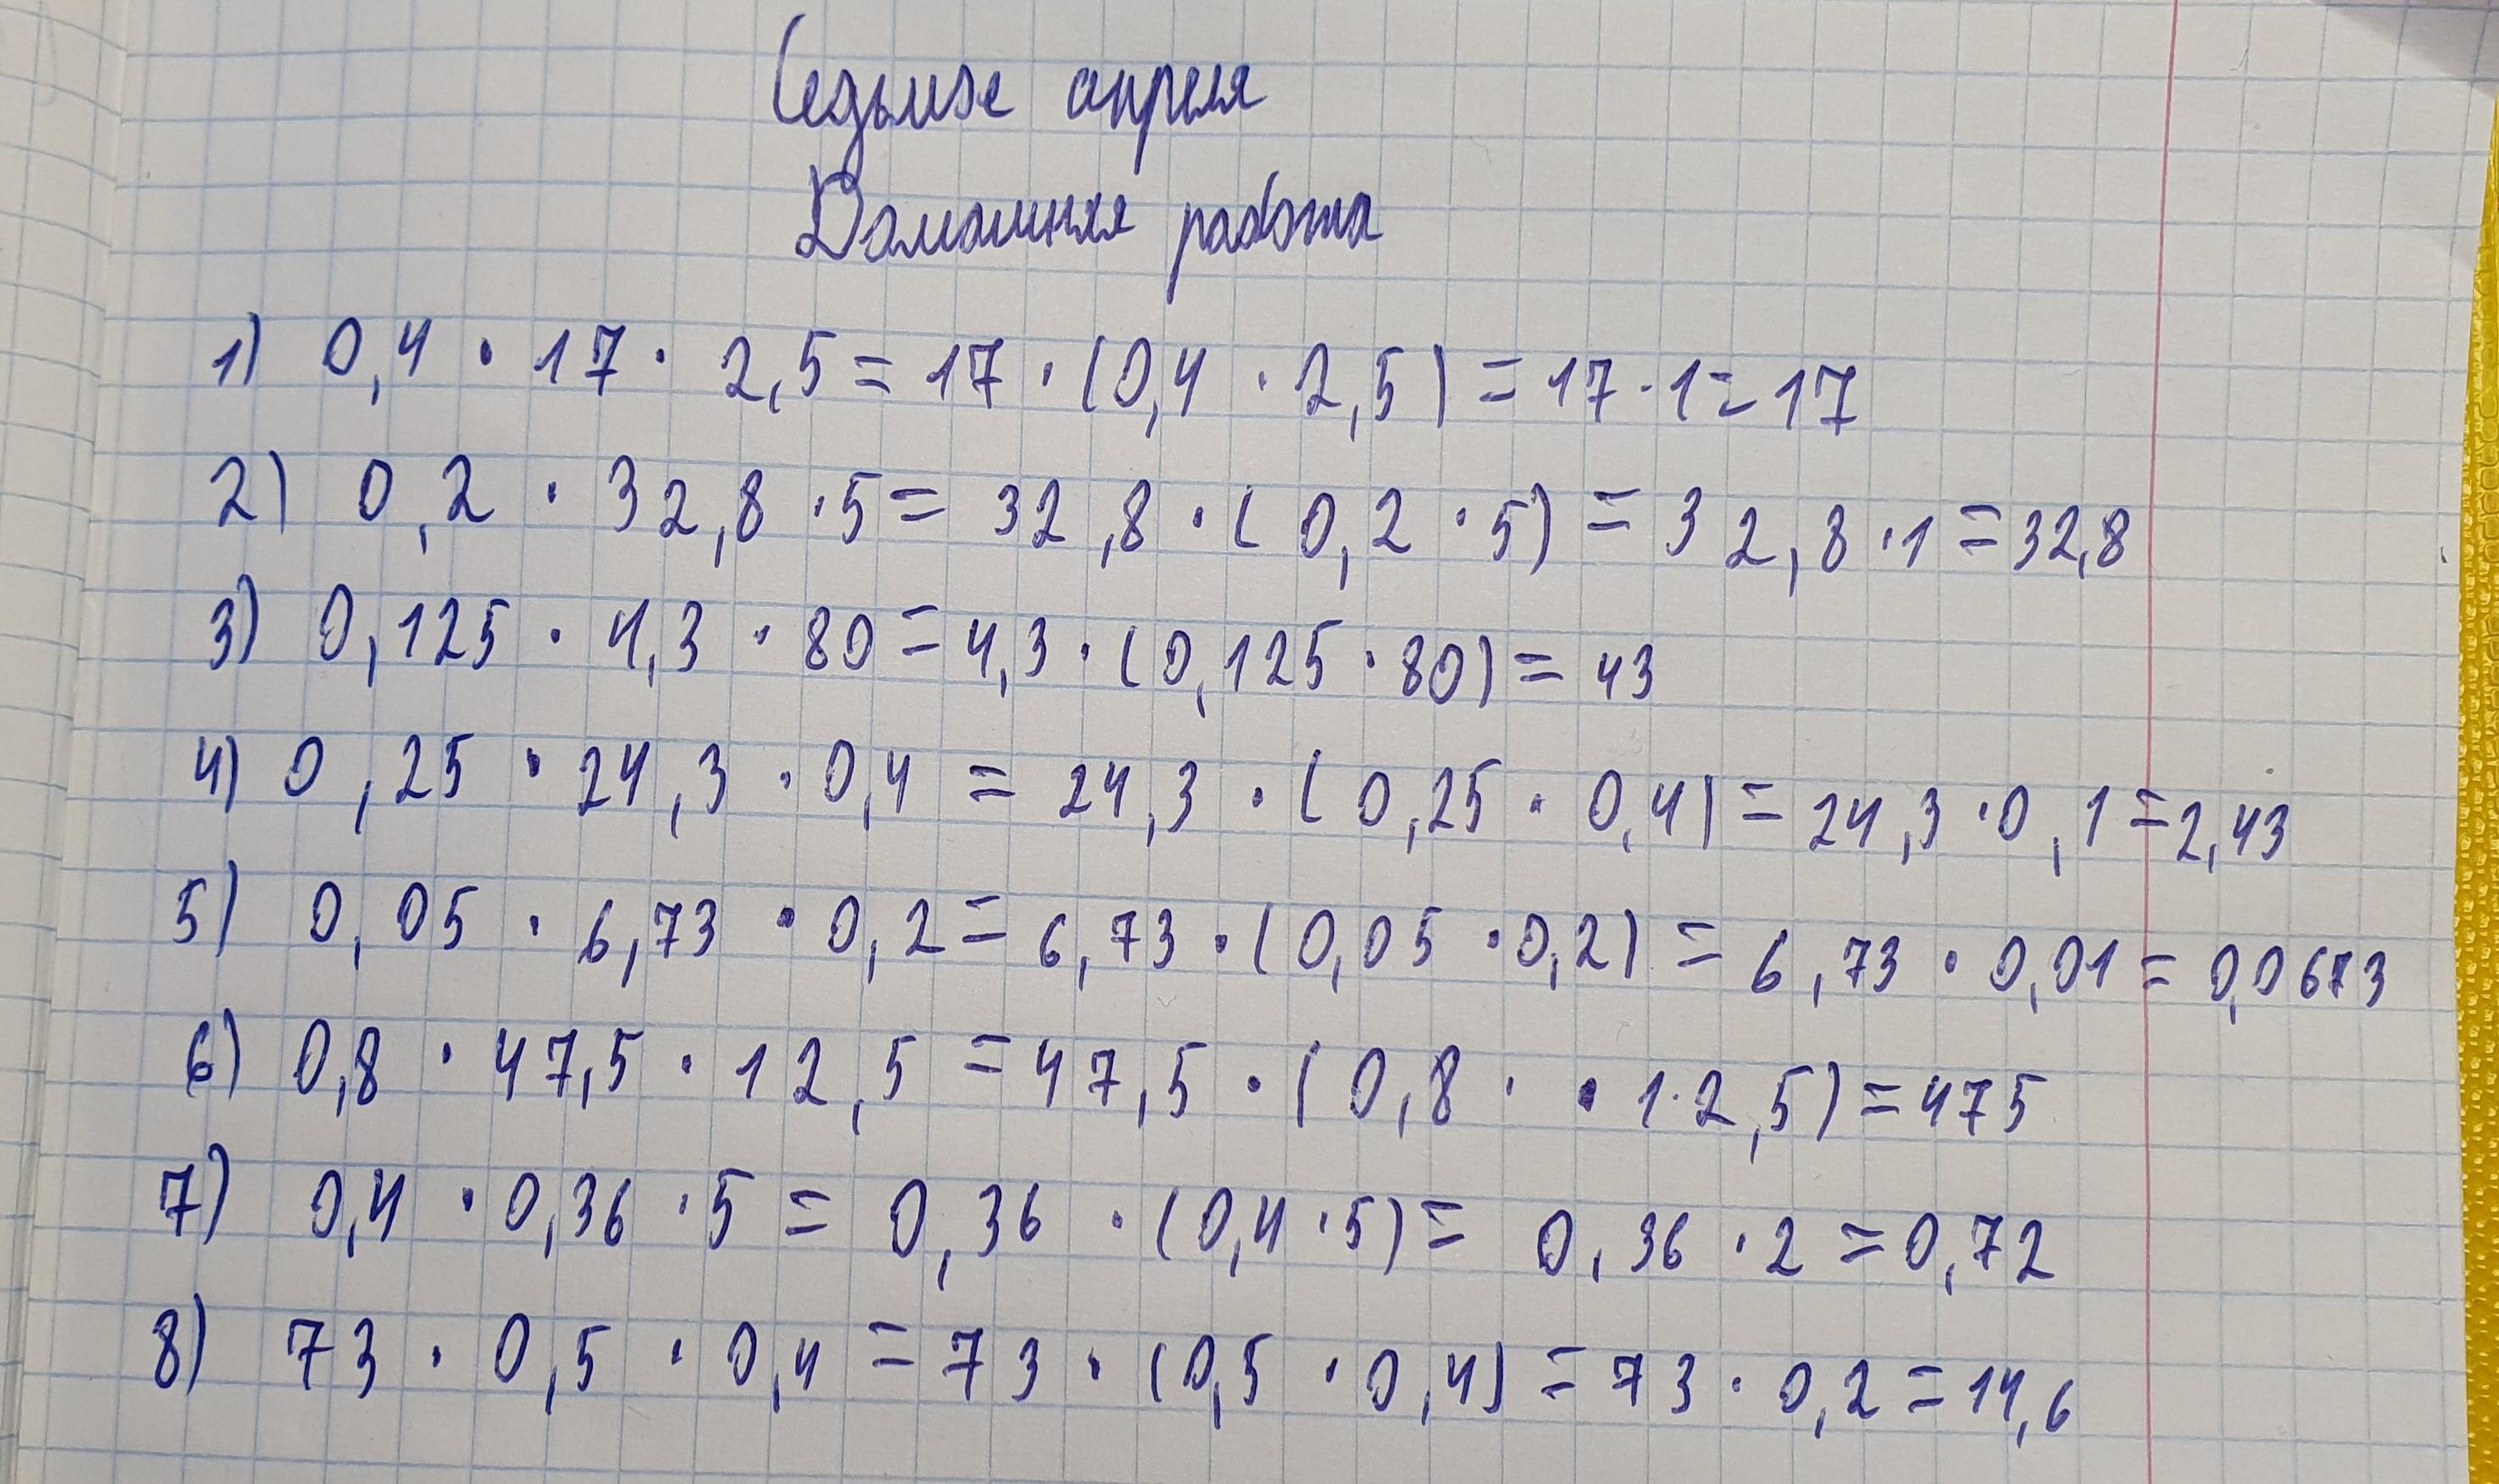 Седьмое апреля
Домашняя работа
1) 0,4 · 17 · 2,5 = 17 · (0,4 · 2,5) = 17 · 1 = 17
2) 0,2 · 32,8 · 5 = 32,8 · (0,2 · 5) = 32,8 · 1 = 32,8
3) 0,125 · 4,3 · 80 = 4,3 · (0,125 · 80) = 43
4) 0,25 · 24,3 · 0,4 = 24,3 · (0,25 · 0,4) = 24,3 · 0,1 = 2,43
5) 0,05 · 6,73 · 0,2 = 6,73 · (0,05 · 0,2) = 6,73 · 0,01 = 0,0673
6) 0,8 · 47,5 · 12,5 = 47,5 · (0,8 · · 1·2,5) = 475
7) 0,4 · 0,36 · 5 = 0,36 · (0,4 · 5) = 0,36 · 2 = 0,72
8) 73 · 0,5 · 0,4 = 73 · (0,5 · 0,4) = 73 · 0,2 = 14,6